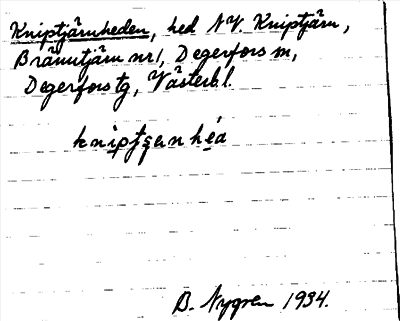 Kniptjärnheden, hed NV. Kniptjärn,
Bränntjärn nr 1, Degerfors sn,
Degerfors tg, Västerb. l.
kniptʂenhéd
B. Nygren 1934.